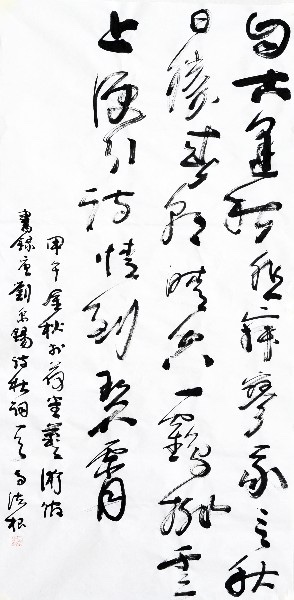 自古逢秋悲寂寥我言秋
日勝春朝晴空一鶴排雲
上便引詩情到碧霄
甲午金秋於荷堂藝術
書錄唐劉禹錫詩秋詞